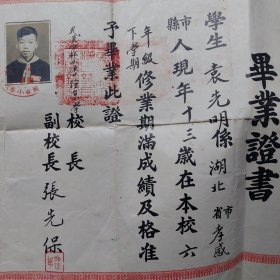 畢業證書
學生 袁先明係 湖北 省市 孝感
縣市 人現年十三歲在本校六
年級 下學期 修業期滿成績及格准
予畢業此證
校長
副校長 張先保